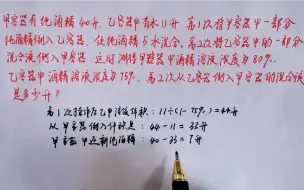 甲容器有纯酒精40升,乙容器中有水11升,第1次将甲容器中一部分
纯酒精倒入乙容器,使纯酒精与水混合,第2次将乙容器中的一部分
混合液倒入甲容器,这时测得甲容器中酒精溶液浓度为80%,
乙容器中酒精溶液浓度为75%,第2次从乙容器倒入甲容器的混合液
是多少升?
第1次操作后乙中溶液体积:11÷(1-75%)=44升
从甲容器倒入体积是:44-11=33升
甲容器中还剩纯酒精:40-33=7升